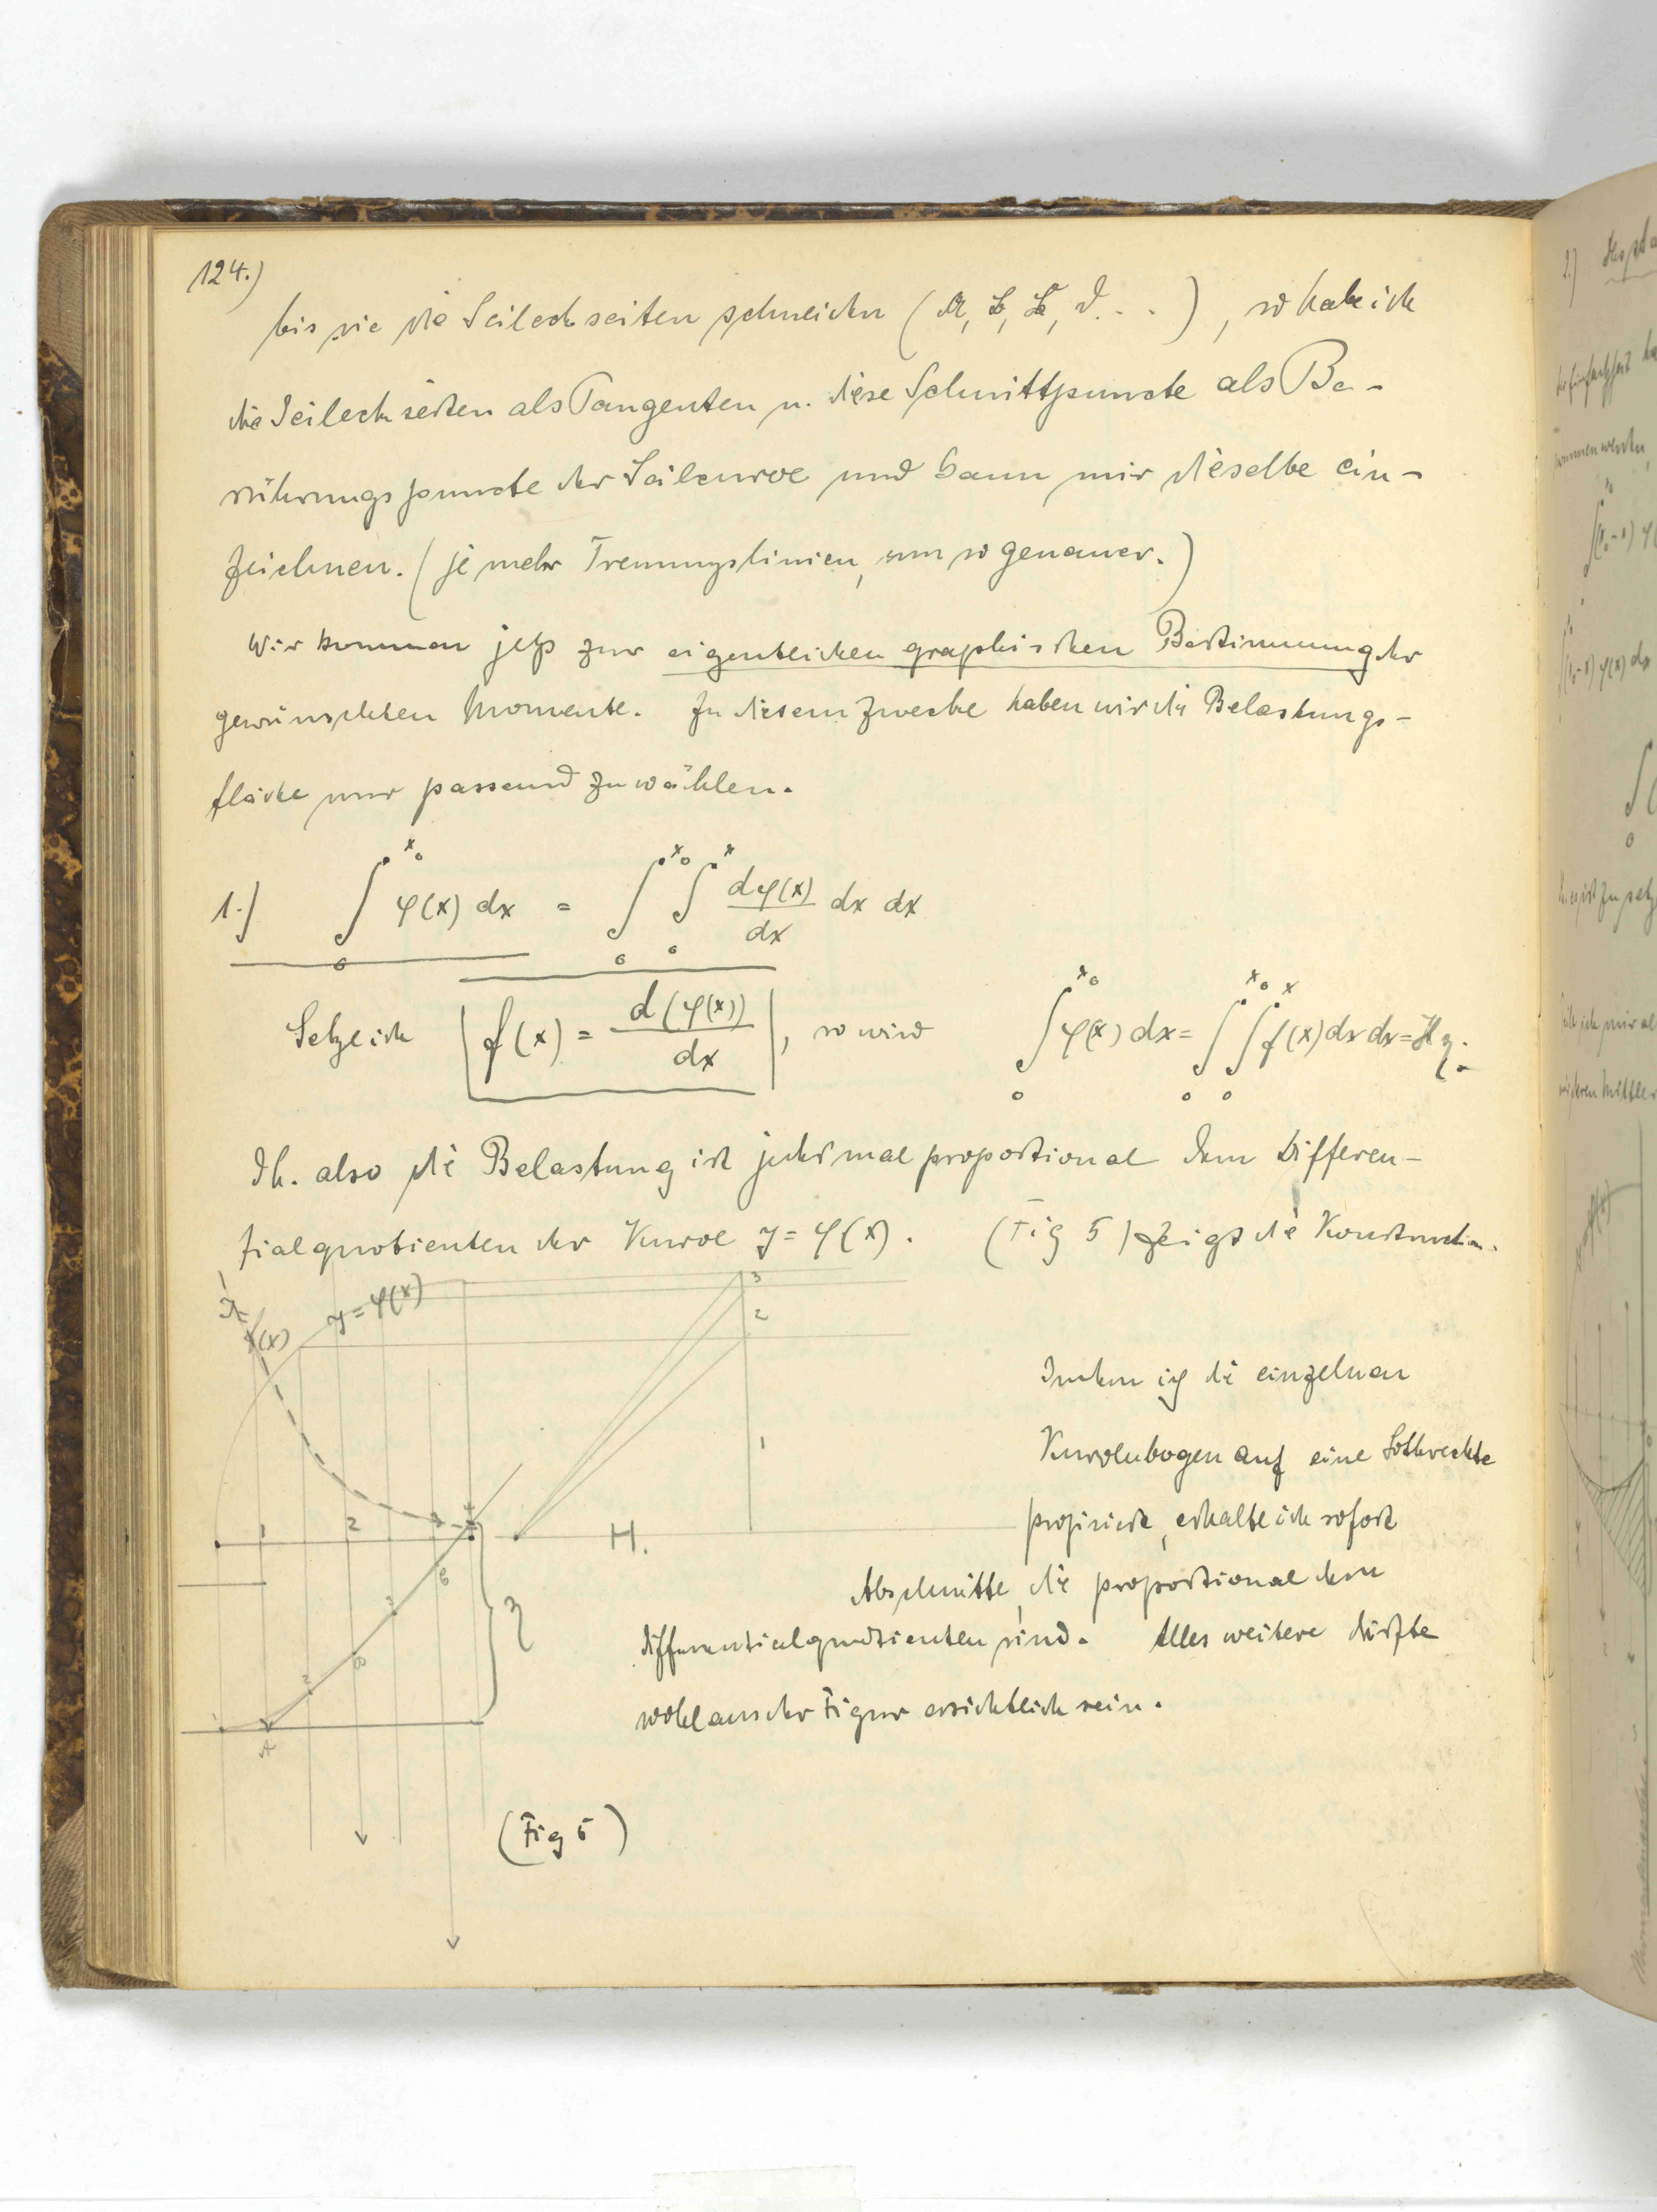 124.)
bis sie die Seileckseiten schneiden (A, B, C, D...), so habe ich
die Seileckseiten als Tangenten u. diese Schnittpuncte als Be-
rührungspuncte der Seilcurve und kann mir dieselbe ein-
zeichnen. (je mehr Trennungslinien, um so genauer.)
Wir kommen jetzt zur eigentlichen graphischen Bestimmung der
gewünschten Momente. Zu diesem Zwecke haben wir die Belastungs-
fläche nur passend zu wählen.
1.) ∫₀^{x₀} φ(x) dx = ∫₀^{x₀} ∫₀^{x} dφ(x)/dx dx dx
Setze ich | f(x) = d(φ(x))/dx |, so wird ∫₀^{x₀} φ(x) dx = ∫₀^{x₀} ∫₀^{x} f(x) dx dx = H η.
Dh. also die Belastung ist jedesmal proportional dem Differen-
tialquotienten der Kurve y = φ(x). (Fig 5) zeigt die Konstruction.
y = φ(x)
f(x)
3
2
1
Indem ich die einzelnen
Kurvenbogen auf eine Lothrechte
projiciere, erhalte ich sofort
1 2 3 4
H.
Abschnitte, die proportional dem
Differentialquotienten sind. Alles weitere dürfte
wohl aus der Figur ersichtlich sein.
C
3
η
B
2
1
A
(Fig 5)